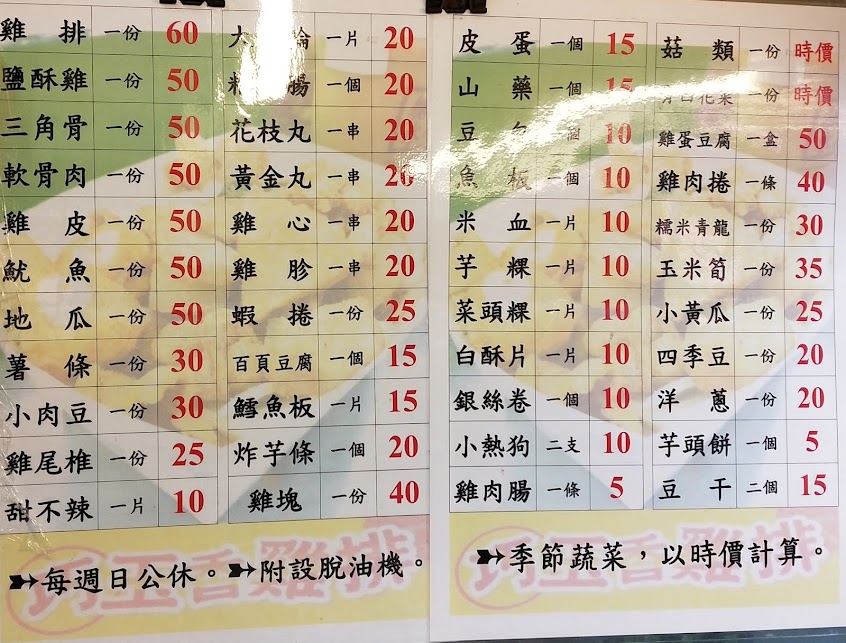 雞排 一份 60
鹽酥雞 一份 50
三角骨 一份 50
軟骨肉 一份 50
雞皮 一份 50
魷魚 一份 50
地瓜 一份 50
薯條 一份 30
小肉豆 一份 30
雞尾椎 一份 25
甜不辣 一片 10
一片 20
腸 一個 20
花枝丸 一串 20
黃金丸 一串 20
雞心 一串 20
雞胗 一串 20
蝦捲 一份 25
百頁豆腐 一個 15
鱈魚板 一片 15
炸芋條 一個 20
雞塊 一份 40
➳每週日公休。➳附設脫油機。
皮蛋 一個 15
山藥 一個 15
豆 10
魚板 一個 10
米血 一片 10
芋粿 一片 10
菜頭粿 一片 10
白酥片 一片 10
銀絲卷 一個 10
小熱狗 二支 10
雞肉腸 一條 5
菇類 一份 時價
青白花菜 一份 時價
雞蛋豆腐 一盒 50
雞肉捲 一條 40
糯米青龍 一份 30
玉米筍 一份 35
小黃瓜 一份 25
四季豆 一份 20
洋蔥 一份 20
芋頭餅 一個 5
豆干 二個 15
➳季節蔬菜，以時價計算。
玉香雞排